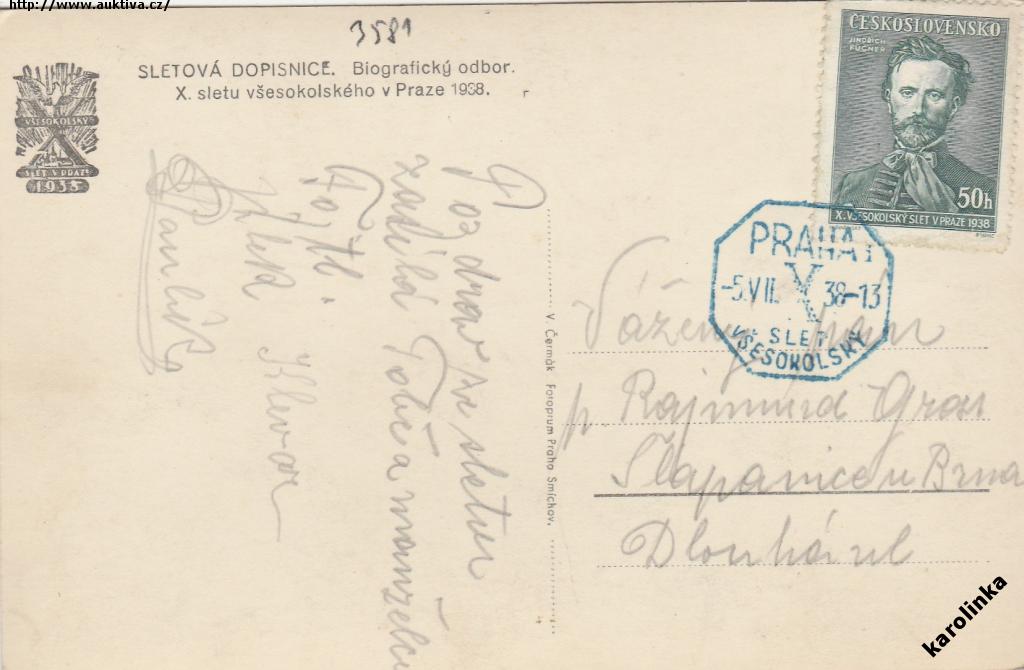 http://www.auktiva.cz/
3581
SLETOVÁ DOPISNICE. Biografický odbor.
X. sletu všesokolského v Praze 1938.
VŠESOKOLSKÝ
SLET V PRAZE
1938
ČESKOSLOVENSKO
JINDŘICH
FÜGNER
50h
X. VŠESOKOLSKÝ SLET V PRAZE 1938
PRAHA 1
-5.VII. X 38-13
SLET
VŠESOKOLSKÝ
Pozdrav ze sletu
zasílá Tobě a manželce
V. Čermák Fotoprum Praha Smíchov.
Vážený pan
p. Rajmund Gros
Šlapanice u Brna
Dlouhá ul
karolinka